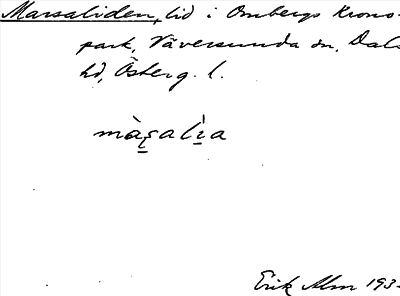 Marsaliden, lid i Ombergs Krono-
park, Väversunda sn, Dals
hd, Österg. l.
màs̱alì̱a
Erik Alm 193